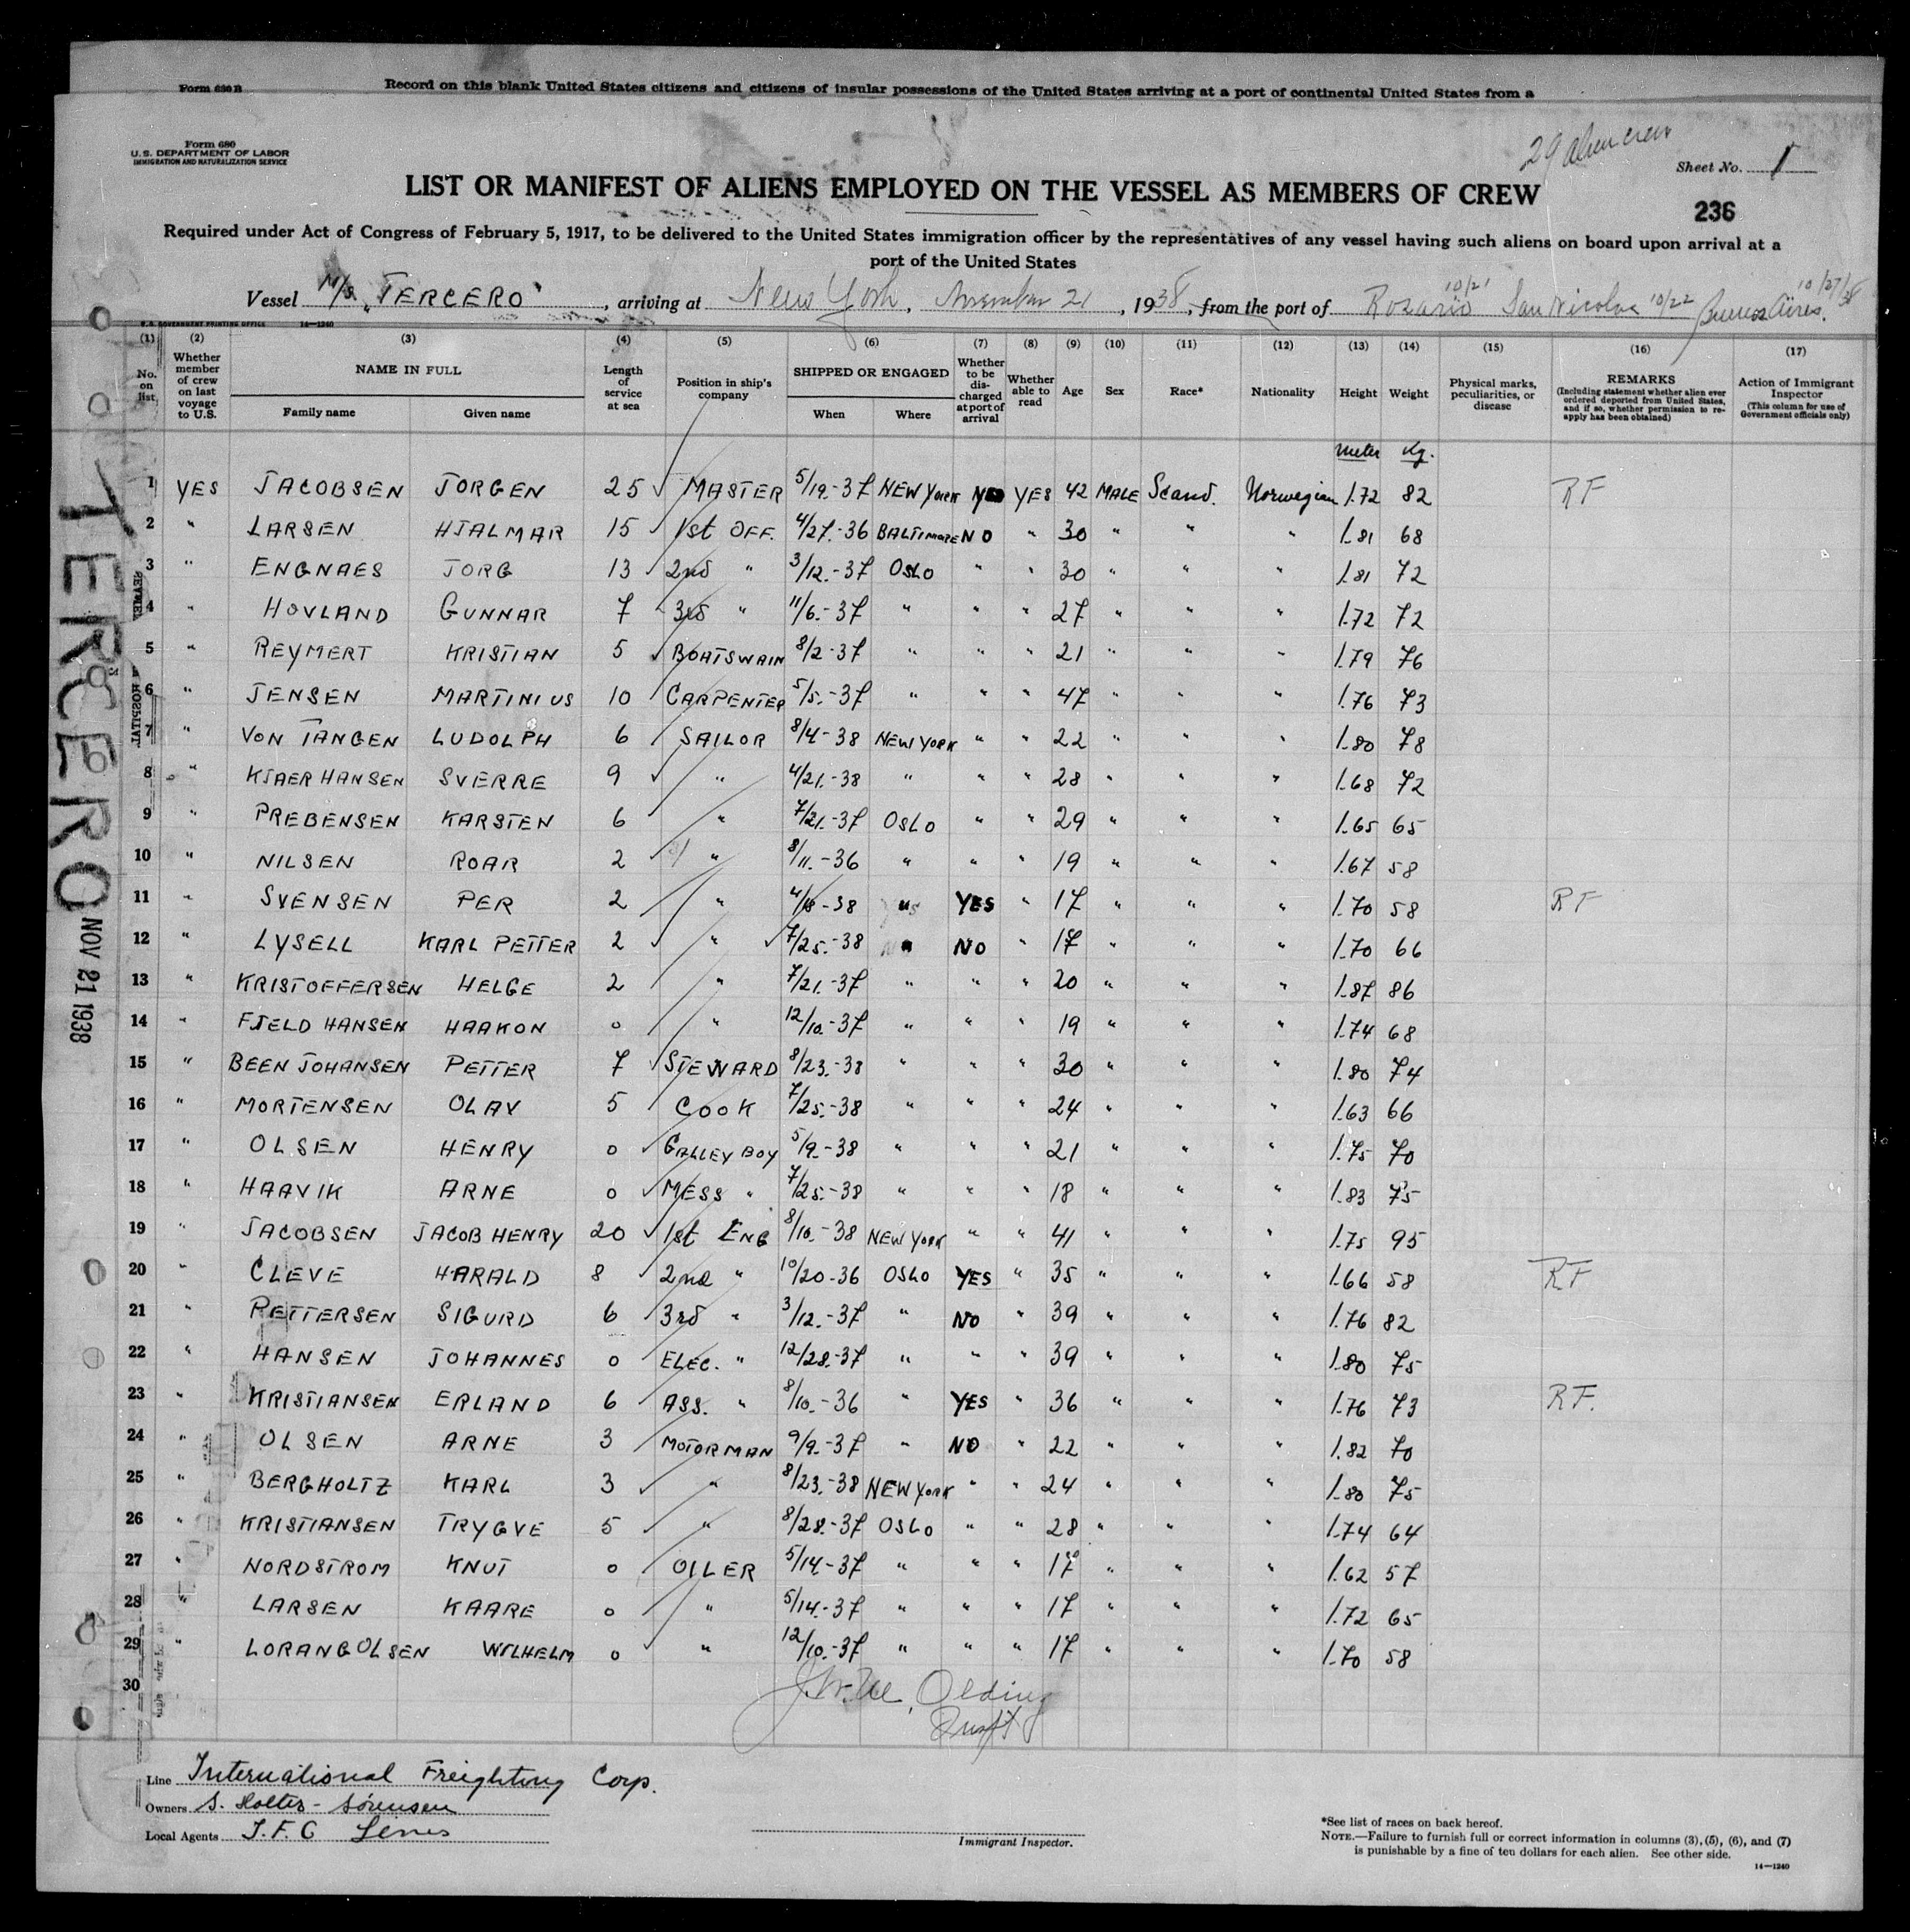 Form 630 B
Record on this blank United States citizens and citizens of insular possessions of the United States arriving at a port of continental United States from a
Form 680
U.S. DEPARTMENT OF LABOR
IMMIGRATION AND NATURALIZATION SERVICE
29 alien crew
Sheet No. 1
LIST OR MANIFEST OF ALIENS EMPLOYED ON THE VESSEL AS MEMBERS OF CREW
236
Required under Act of Congress of February 5, 1917, to be delivered to the United States immigration officer by the representatives of any vessel having such aliens on board upon arrival at a
port of the United States
Vessel M/S "TERCERO", arriving at New York, November 21, 1938, from the port of Rosario 10/21 San Nicolas 10/22 Buenos Aires. 10/27/38
U.S. GOVERNMENT PRINTING OFFICE 14—1240
(1) (2) (3) (4) (5) (6) (7) (8) (9) (10) (11) (12) (13) (14) (15) (16) (17)
No. on list
Whether member of crew on last voyage to U.S.
NAME IN FULL
Family name Given name
Length of service at sea
Position in ship's company
SHIPPED OR ENGAGED
When Where
Whether to be discharged at port of arrival
Whether able to read
Age
Sex
Race*
Nationality
Height
Weight
Physical marks, peculiarities, or disease
REMARKS
(Including statement whether alien ever ordered deported from United States, and if so, whether permission to reapply has been obtained)
Action of Immigrant Inspector
(This column for use of Government officials only)
meter Kg.
1 YES JACOBSEN JORGEN 25 MASTER 5/19.-37 NEW YORK YES 42 MALE Scand. Norwegian 1.72 82 RF
2 " LARSEN HJALMAR 15 1st OFF. 4/27.-36 BALTIMORE NO " 30 " " " 1.81 68
3 " ENGNAES JORG 13 2nd " 3/12.-37 OSLO " " 30 " " " 1.81 72
4 " HOVLAND GUNNAR 7 3rd " 11/6.-37 " " " 27 " " " 1.72 72
5 " REYMERT KRISTIAN 5 BOATSWAIN 8/2-37 " " " 21 " " " 1.79 76
6 " JENSEN MARTINIUS 10 CARPENTER 5/5.-37 " " " 47 " " " 1.76 73
7 " VON TANGEN LUDOLPH 6 SAILOR 8/4-38 NEW YORK " " 22 " " " 1.80 78
8 " KJAER HANSEN SVERRE 9 " 4/21.-38 " " " 28 " " " 1.68 72
9 " PREBENSEN KARSTEN 6 " 7/21.-37 OSLO " " 29 " " " 1.65 65
10 " NILSEN ROAR 2 " 8/11.-36 " " " 19 " " " 1.67 58
11 " SVENSEN PER 2 " -38 " YES " 17 " " " 1.70 58 RF
12 " LYSELL KARL PETTER 2 " 7/25.-38 " NO " 17 " " " 1.70 66
13 " KRISTOFFERSEN HELGE 2 " 7/21.-37 " " " 20 " " " 1.87 86
14 " FJELD HANSEN HAAKON 0 " 12/10.-37 " " " 19 " " " 1.74 68
15 " BEEN JOHANSEN PETTER 7 STEWARD 8/23.-38 " " " 30 " " " 1.80 74
16 " MORTENSEN OLAV 5 COOK 7/25.-38 " " " 24 " " " 1.63 66
17 " OLSEN HENRY 0 GALLEY BOY 5/9.-38 " " " 21 " " " 1.75 70
18 " HAAVIK ARNE 0 MESS " 7/25.-38 " " " 18 " " " 1.83 75
19 " JACOBSEN JACOB HENRY 20 1st ENG 8/10.-38 NEW YORK " " 41 " " " 1.75 95
20 " CLEVE HARALD 8 2nd " 10/20-36 OSLO YES " 35 " " " 1.66 58 RF
21 " PETTERSEN SIGURD 6 3rd " 3/12.-37 " NO " 39 " " " 1.76 82
22 " HANSEN JOHANNES 0 ELEC. " 12/28.-37 " " " 39 " " " 1.80 75
23 " KRISTIANSEN ERLAND 6 ASS. " 8/10.-36 " YES " 36 " " " 1.76 73 RF.
24 " OLSEN ARNE 3 MOTORMAN 9/9.-37 " NO " 22 " " " 1.82 70
25 " BERGHOLTZ KARL 3 " 8/23.-38 NEW YORK " " 24 " " " 1.80 75
26 " KRISTIANSEN TRYGVE 5 " 8/28.-37 OSLO " " 28 " " " 1.74 64
27 " NORDSTROM KNUT 0 OILER 5/14-37 " " " 17 " " " 1.62 57
28 " LARSEN KAARE 0 " 5/14.-37 " " " 17 " " " 1.72 65
29 " LORANG OLSEN WILHELM 0 " 12/10.-37 " " " 17 " " " 1.70 58
30
Line International Freighting Corp.
Owners S. Holter-Sørensen
Local Agents I.F.C Lines
Immigrant Inspector.
*See list of races on back hereof.
NOTE.—Failure to furnish full or correct information in columns (3), (5), (6), and (7)
is punishable by a fine of ten dollars for each alien. See other side.
14—1240
TERCERO
NOV 21 1938